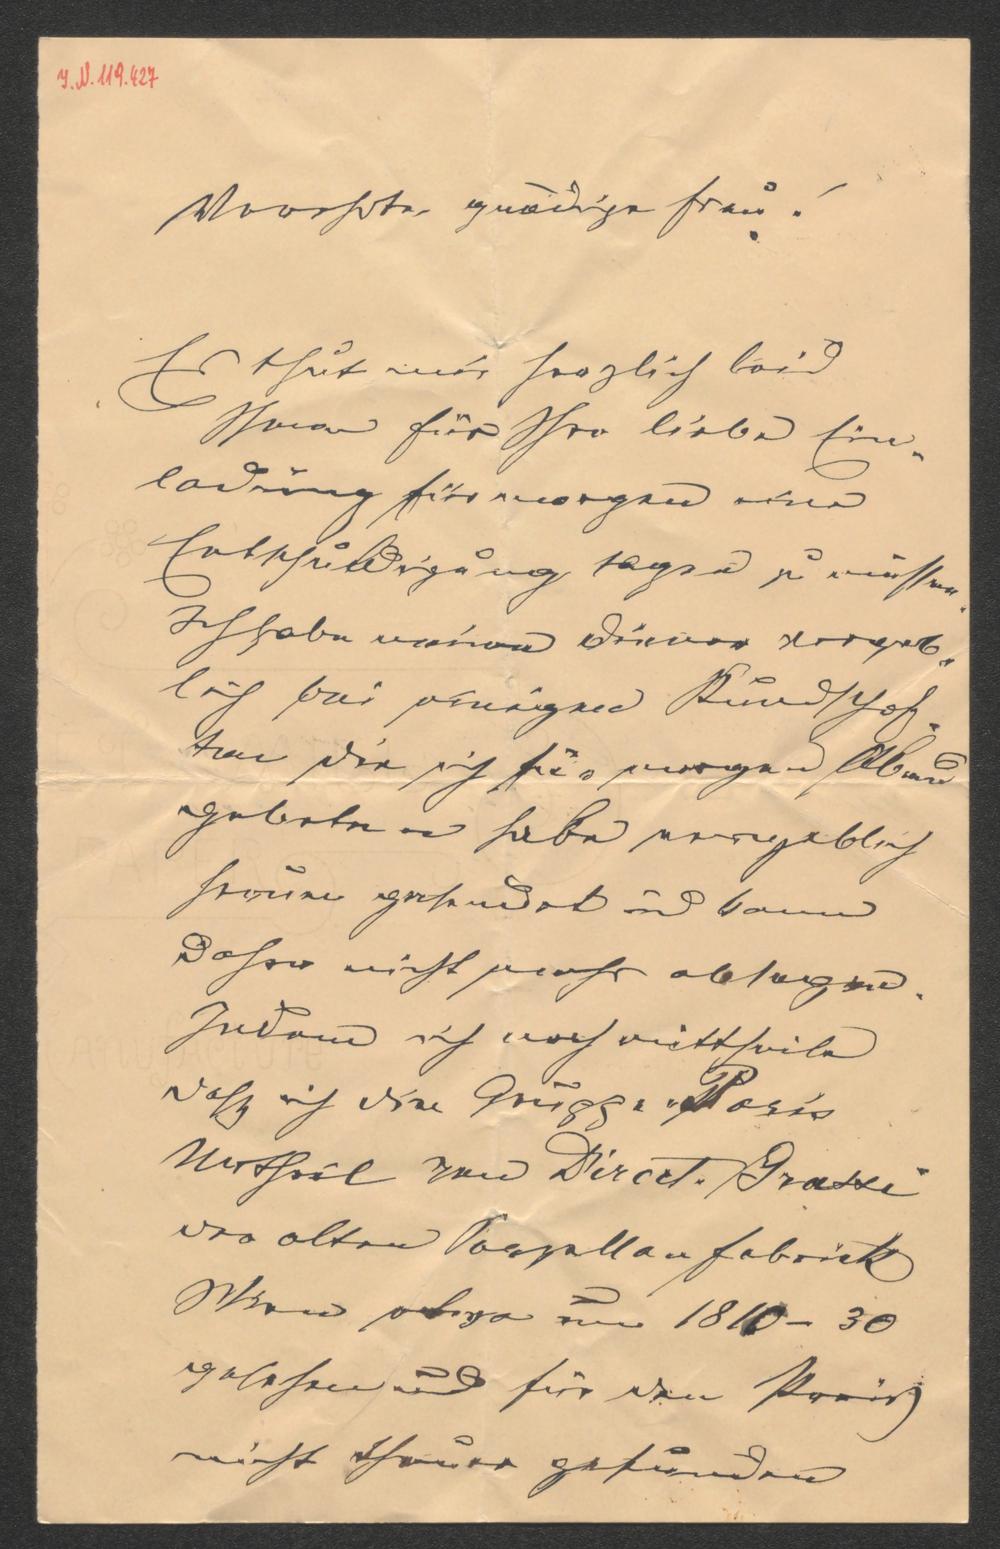 J.N. 119.427
Verehrte, gnädige Frau!
Es thut mir herzlich leid
Ihnen für Ihre liebe Ein-
ladung für morgen eine
Entschuldigung sagen zu müssen.
Ich habe meinen Diener vergeb-
lich bei einigen Kundschaf-
ten die ich für morgen Abend
gebeten habe vergeblich
herum gesendet und kann
daher nicht mehr absagen.
Indem ich noch mittheile
daß ich die Gruppe "Paris
Urtheil von Direct. Grassi
der alten Porzellanfabrick
Wien etwa um 1810 - 30
gesehen und für den Preis
nicht theuer gefunden